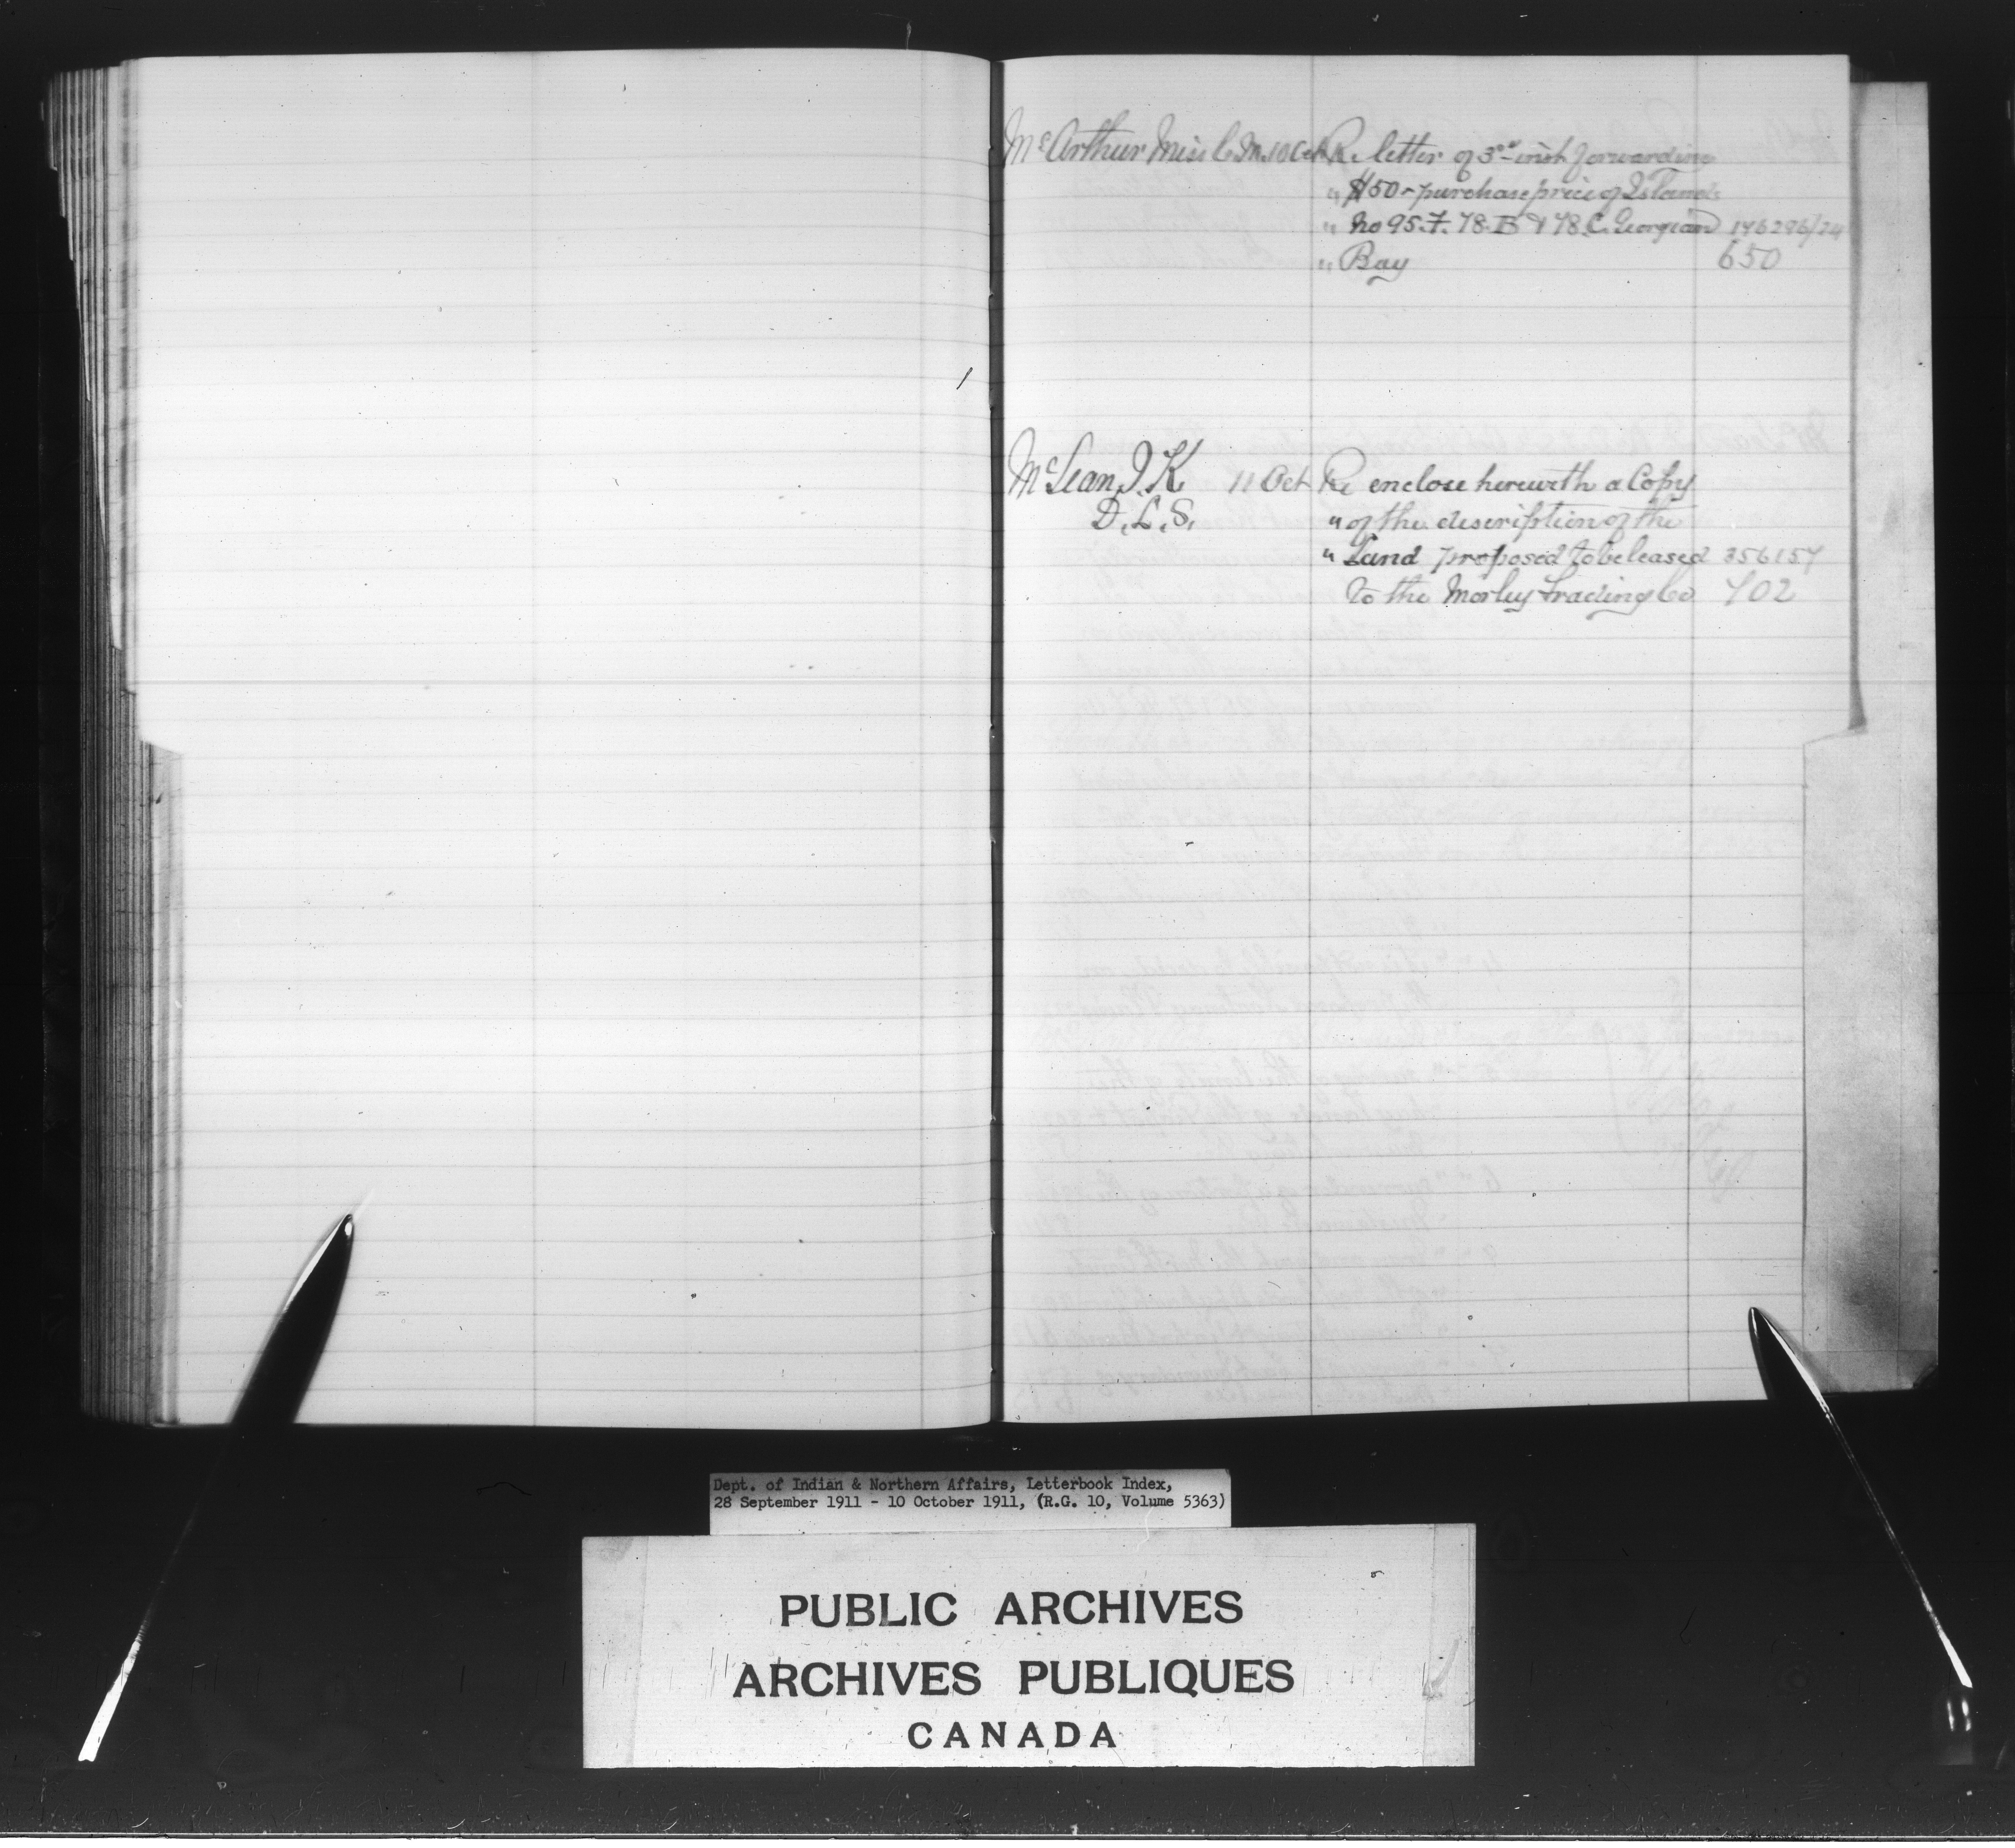 McArthur Miss C. M. 10 Oct Re letter of 3rd inst forwarding
" $50 - purchase price of Islands
" No 95.F. 78.B & 78.C. Georgian 146296/24
" Bay 650
McLean, J. K 11 Oct Re enclose herewith a Copy
D. L. S. " of the description of the
" Land proposed to be leased 356154
to the Morley Trading Co 702
Dept. of Indian & Northern Affairs, Letterbook Index,
28 September 1911 - 10 October 1911, (R.G. 10, Volume 5363)
PUBLIC ARCHIVES
ARCHIVES PUBLIQUES
CANADA